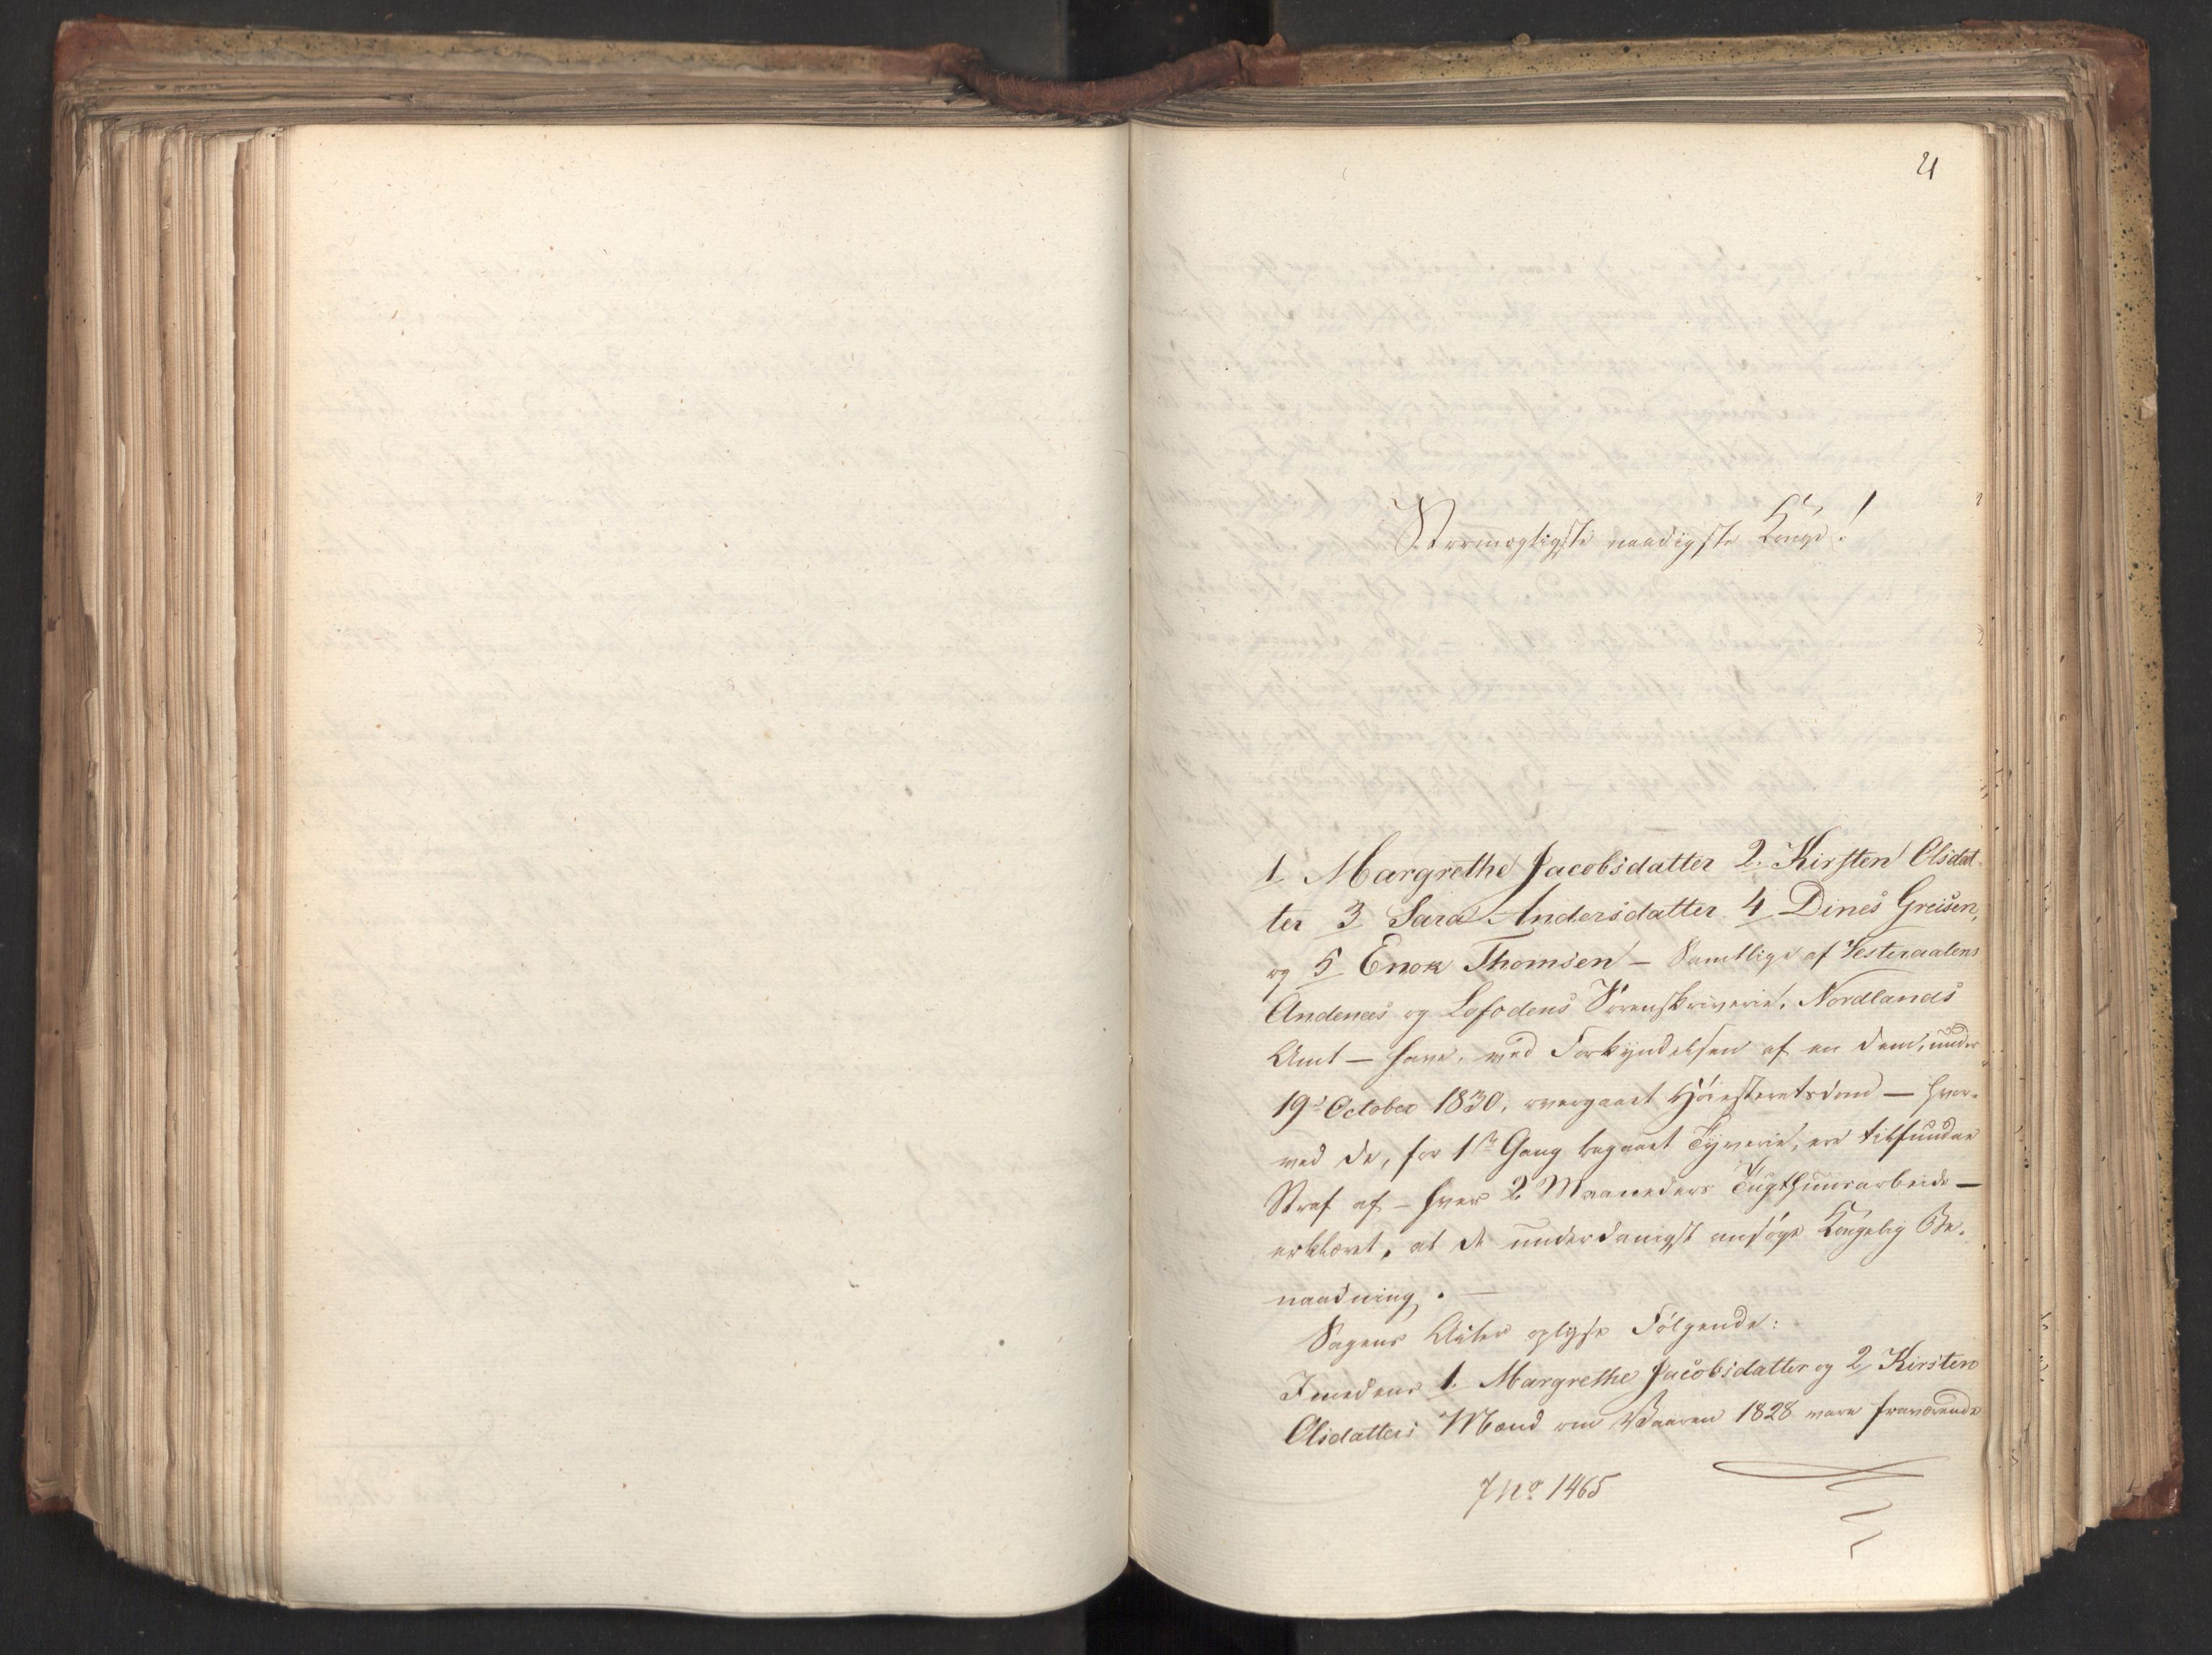 21
Stormægtigste naadigste Konge!
1. Margrethe Jacobsdatter 2. Kirsten Olsdat-
ter 3 Sara Andersdatter 4 Dines Greisen,
og 5 Enok Thomsen – Samtlige af Vesteraalens
Andenæs og Lofodens Sorenskriverie, Nordlands
Amt – have, ved Forkyndelsen af en dem, under
19de October 1830, overgaaet Høiesteretsdom – hvor-
ved de, for 1ste Gang begaaet Tyverie, ere tilfundne
Straf af – hver 2 Maaneders Tugthuusarbeide –
erklæret, at de underdanigst ansøge Kongelig Be-
naadning. –
Sagens Acter oplyse Følgende:
Imedens 1. Margrethe Jacobsdatter og 2 Kirsten
Olsdatters Mænd om Vaaren 1828 vare fraværende
7 No 1465